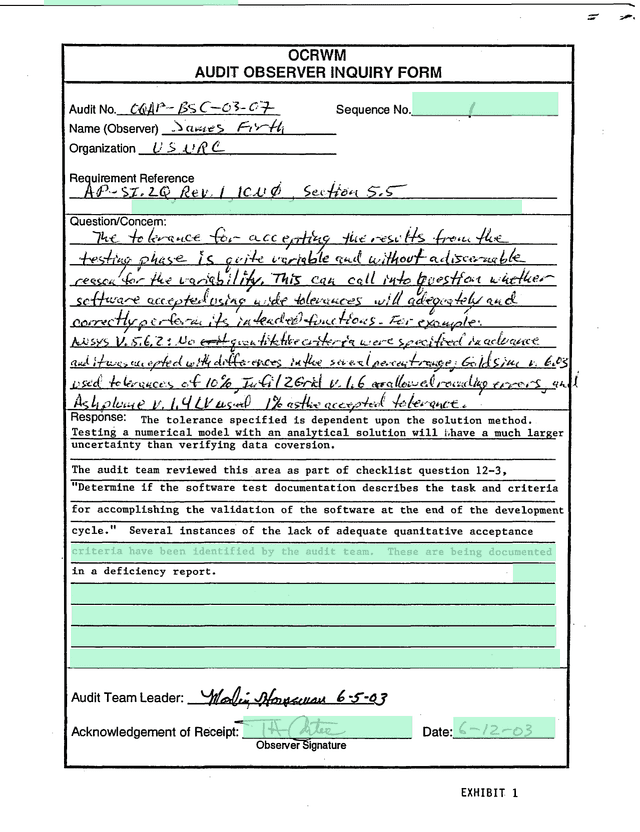 OCRWM
AUDIT OBSERVER INQUIRY FORM
Audit No. OQAP-BSC-03-07 Sequence No. 1
Name (Observer) James Firth
Organization US NRC
Requirement Reference
AP-SI.2Q Rev. 1 ICN0, Section 5.5
Question/Concern:
The tolerance for accepting the results from the
testing phase is quite variable and without a discernable
reason for the variability. This can call into question whether
software accepted using wide tolerances will adequately and
correctly perform its intended functions. For example:
ANSYS V.5.6.2: No quantitative criteria were specified in advance
and it was accepted with differences in the several percent range; Goldsim v. 6.03
used tolerances of 10%, Infil2Grid v.1.6 allowed rounding errors, and
Ashplume v. 1.4LV used 1% as the accepted tolerance.
Response: The tolerance specified is dependent upon the solution method.
Testing a numerical model with an analytical solution will have a much larger
uncertainty than verifying data coversion.
The audit team reviewed this area as part of checklist question 12-3,
"Determine if the software test documentation describes the task and criteria
for accomplishing the validation of the software at the end of the development
cycle." Several instances of the lack of adequate quanitative acceptance
criteria have been identified by the audit team. These are being documented
in a deficiency report.
Audit Team Leader: 6-5-03
Acknowledgement of Receipt: Date: 6-12-03
Observer Signature
EXHIBIT 1